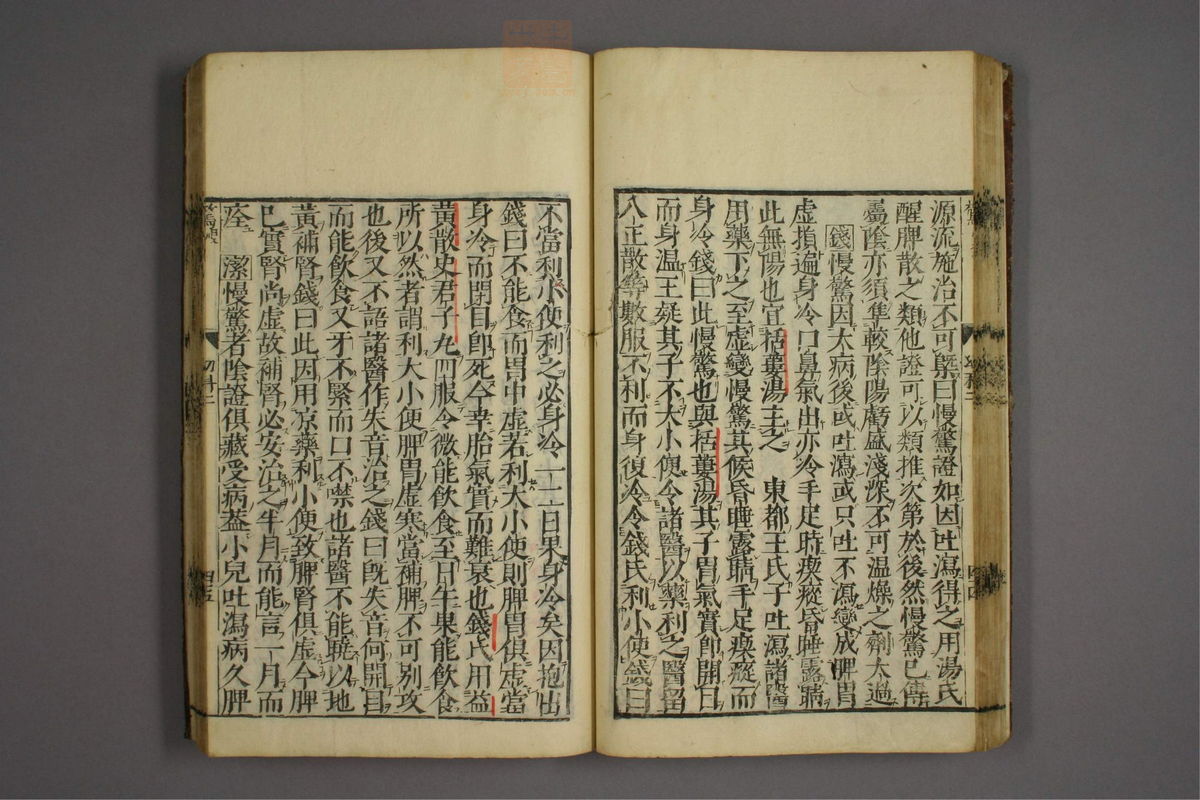 源流施治不可槩曰慢驚證如因吐瀉得之用湯氏
醒脾散之類他證可以類推次第於後然慢驚已傳
屬陰亦須準較陰陽虧盛淺深不可温燥之劑太過
錢慢驚因大病後或吐瀉或只吐不瀉變成脾胃
虚損遍身冷口鼻氣出亦冷手足時瘈瘲昏睡露睛
此無陽也宜栝蔞湯主之 東都王氏子吐瀉諸醫
用藥下之至虚變慢驚其候昏睡露睛手足瘈瘲而
身冷錢曰此慢驚也與栝蔞湯其子胃氣實即開目
而身温王疑其子不大小便令諸醫以藥利之醫留
八正散等數服不利而身復冷令錢氏利小便錢曰
不當利小便利之必身冷一二日果身冷矣因抱出
錢曰不能食而胃中虚若利大小便則脾胃俱虚當
身冷而閉目即死今幸胎氣實而難衰也錢氏用益
黄散史君子丸四服令微能飲食至日午果能飲食
所以然者謂利大小便脾胃虚寒當補脾不可别攻
也後又不語諸醫作失音治之錢曰既失音何開目
而能飲食又牙不緊而口不噤也諸醫不能曉以地
黄補腎錢曰此因用凉藥利小便致脾腎俱虚今脾
已實腎尚虚故補腎必安治之半月而能言一月而
痊 潔慢驚者陰證俱藏受病葢小兒吐瀉病久脾